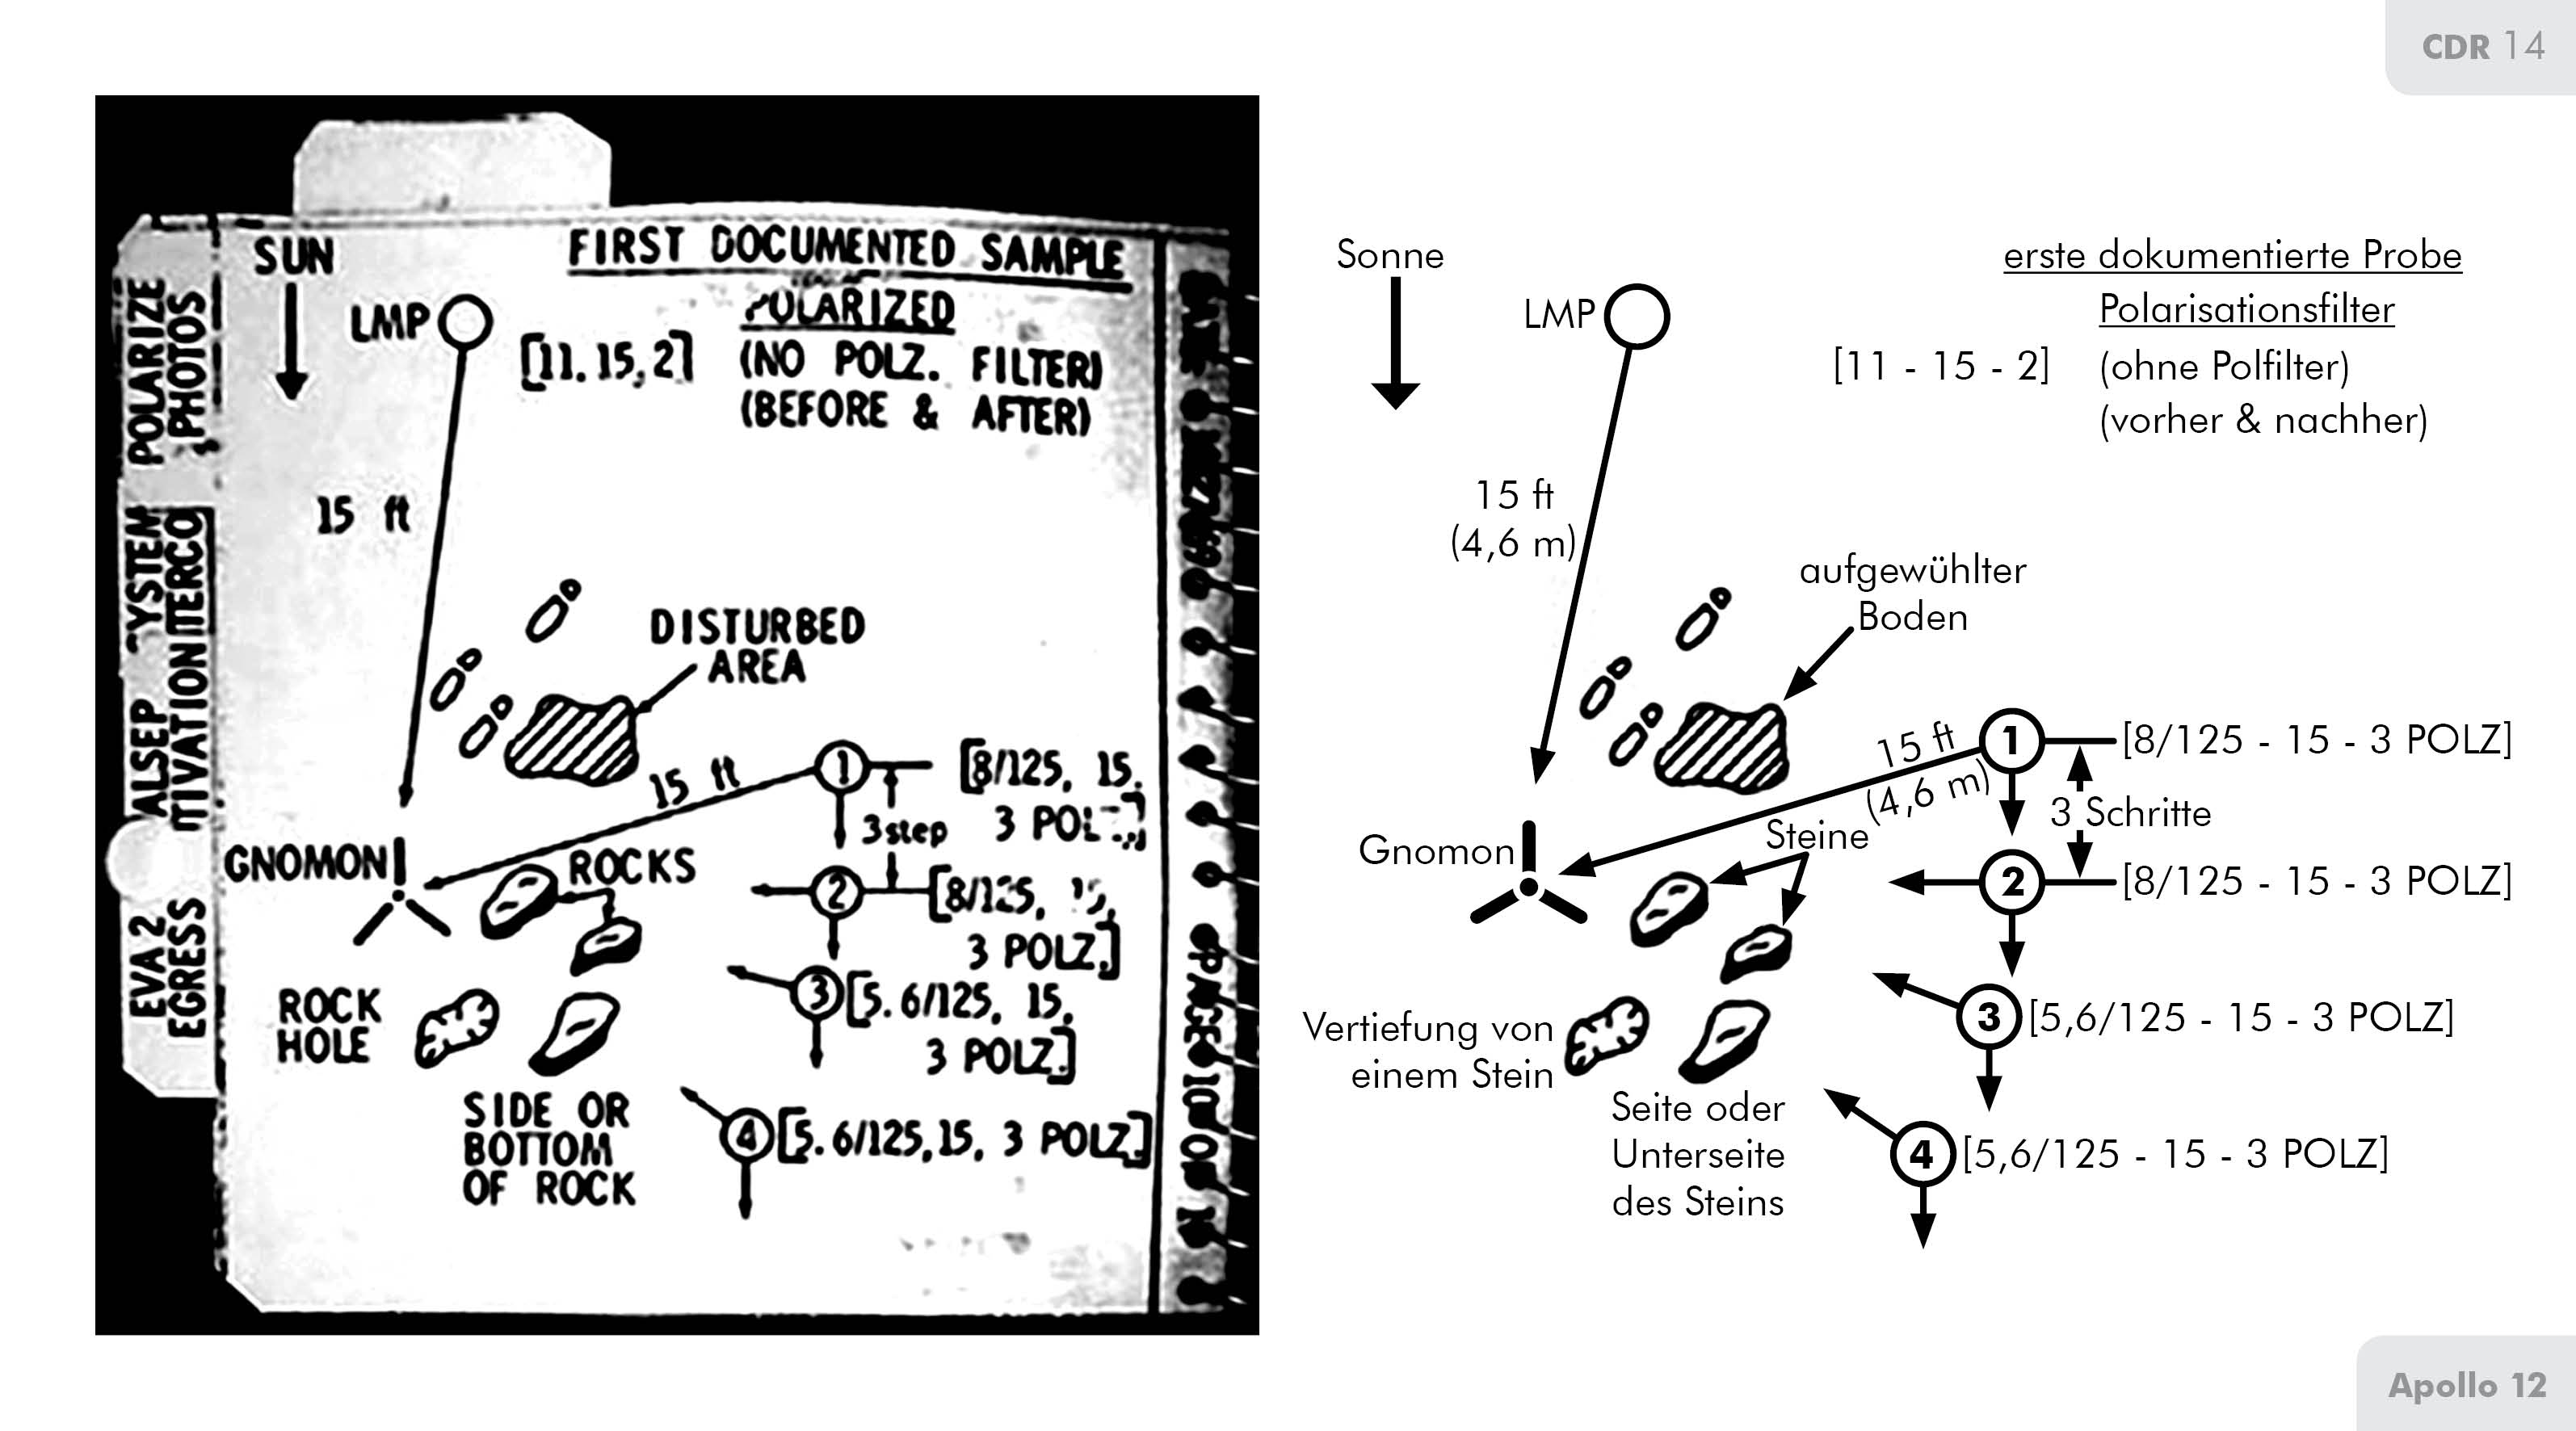 CDR 14
POLARIZE
PHOTOS
ALSEP
EVA 2
EGRESS
SUN
FIRST DOCUMENTED SAMPLE
POLARIZED
LMP
[11. 15, 2]
(NO POLZ. FILTER)
(BEFORE & AFTER)
15 ft
DISTURBED
AREA
15 ft
1
[8/125, 15.
3step
GNOMON
ROCKS
2
3 POLZ.]
3
[5.6/125, 15,
3 POLZ]
ROCK
HOLE
SIDE OR
BOTTOM
OF ROCK
4
[5.6/125,15, 3 POLZ.]
Sonne
erste dokumentierte Probe
LMP
Polarisationsfilter
[11 - 15 - 2]
(ohne Polfilter)
(vorher & nachher)
15 ft
(4,6 m)
aufgewühlter
Boden
15 ft
(4,6 m)
1
[8/125 - 15 - 3 POLZ]
3 Schritte
Steine
Gnomon
2
[8/125 - 15 - 3 POLZ]
3
[5,6/125 - 15 - 3 POLZ]
Vertiefung von
einem Stein
Seite oder
Unterseite
des Steins
4
[5,6/125 - 15 - 3 POLZ]
Apollo 12